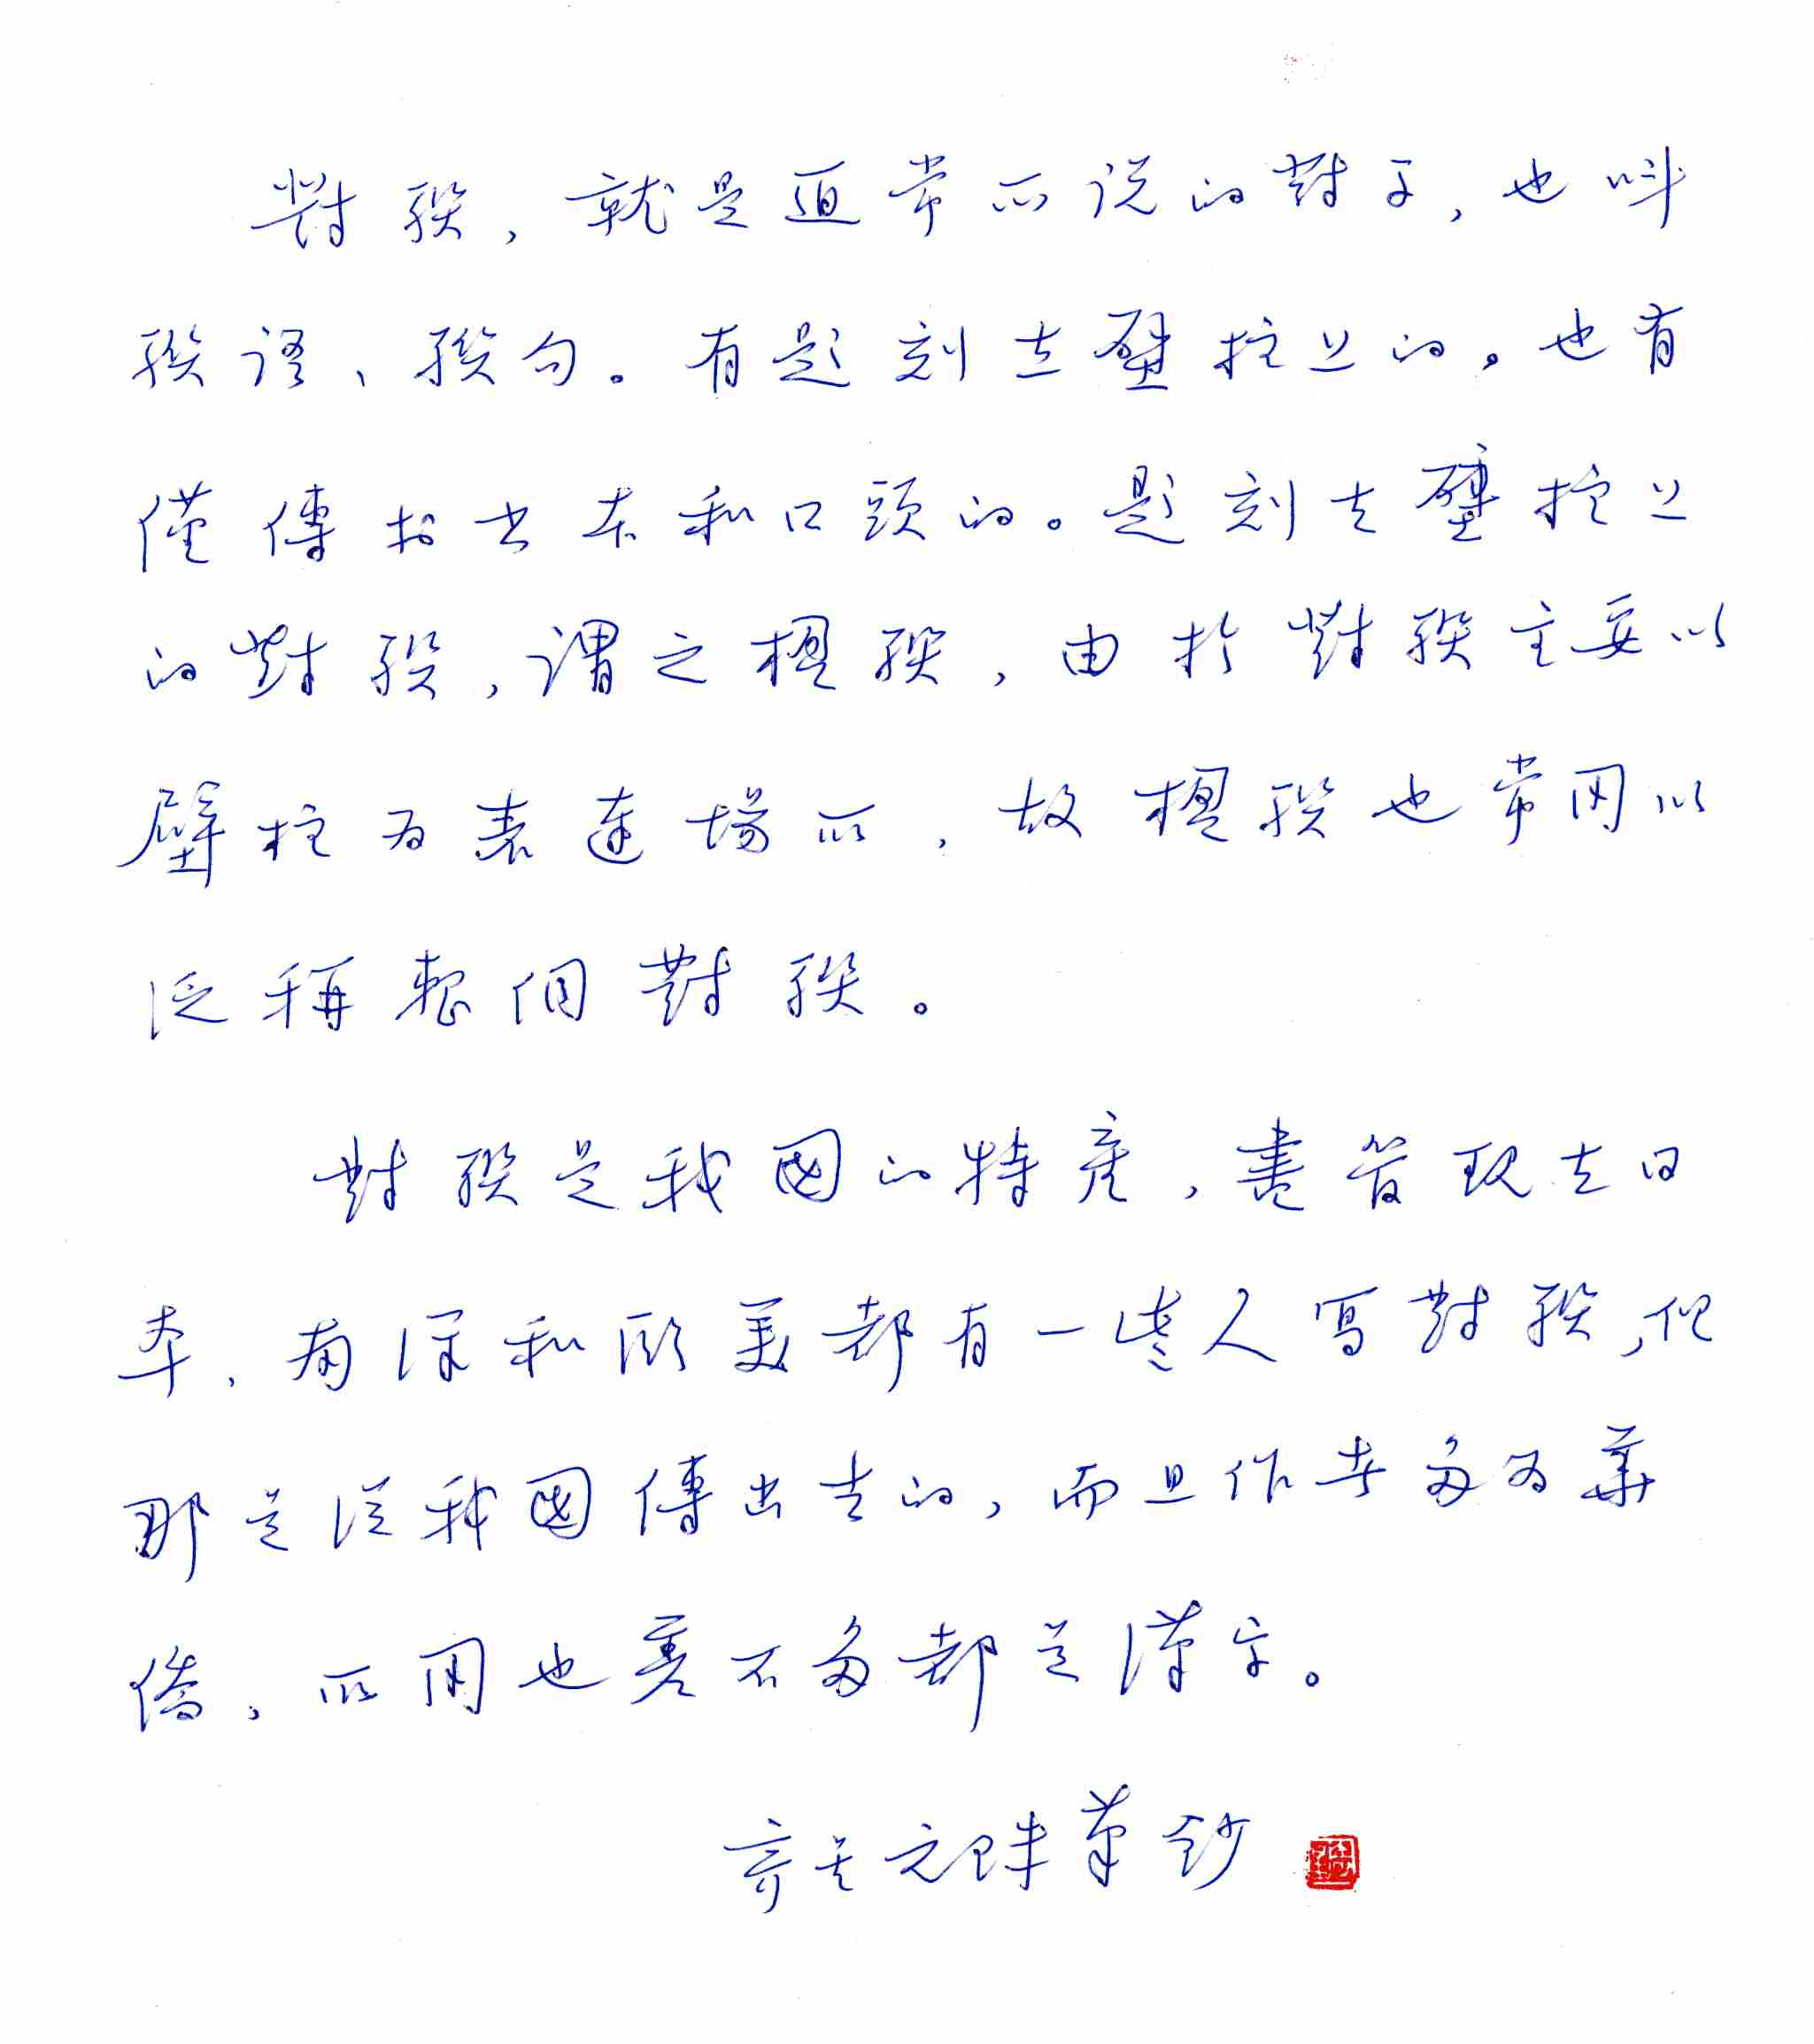 對聯，就是通常所說的對子，也叫
聯語、聯句。有題刻在壁柱上的。也有
僅傳於書本和口頭的。題刻在壁柱上
的對聯，謂之楹聯，由於對聯主要以
壁柱為表達場所，故楹聯也常用以
泛稱整個對聯。
對聯是我國的特產，盡管現在日
本、南洋和歐美都有一些人寫對聯，但
那是從我國傳出去的，而且作者多為華
僑，所用也差不多都是漢字。
元 鈔